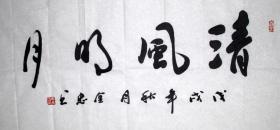 清風明月
戊戌年秋月金忠玉